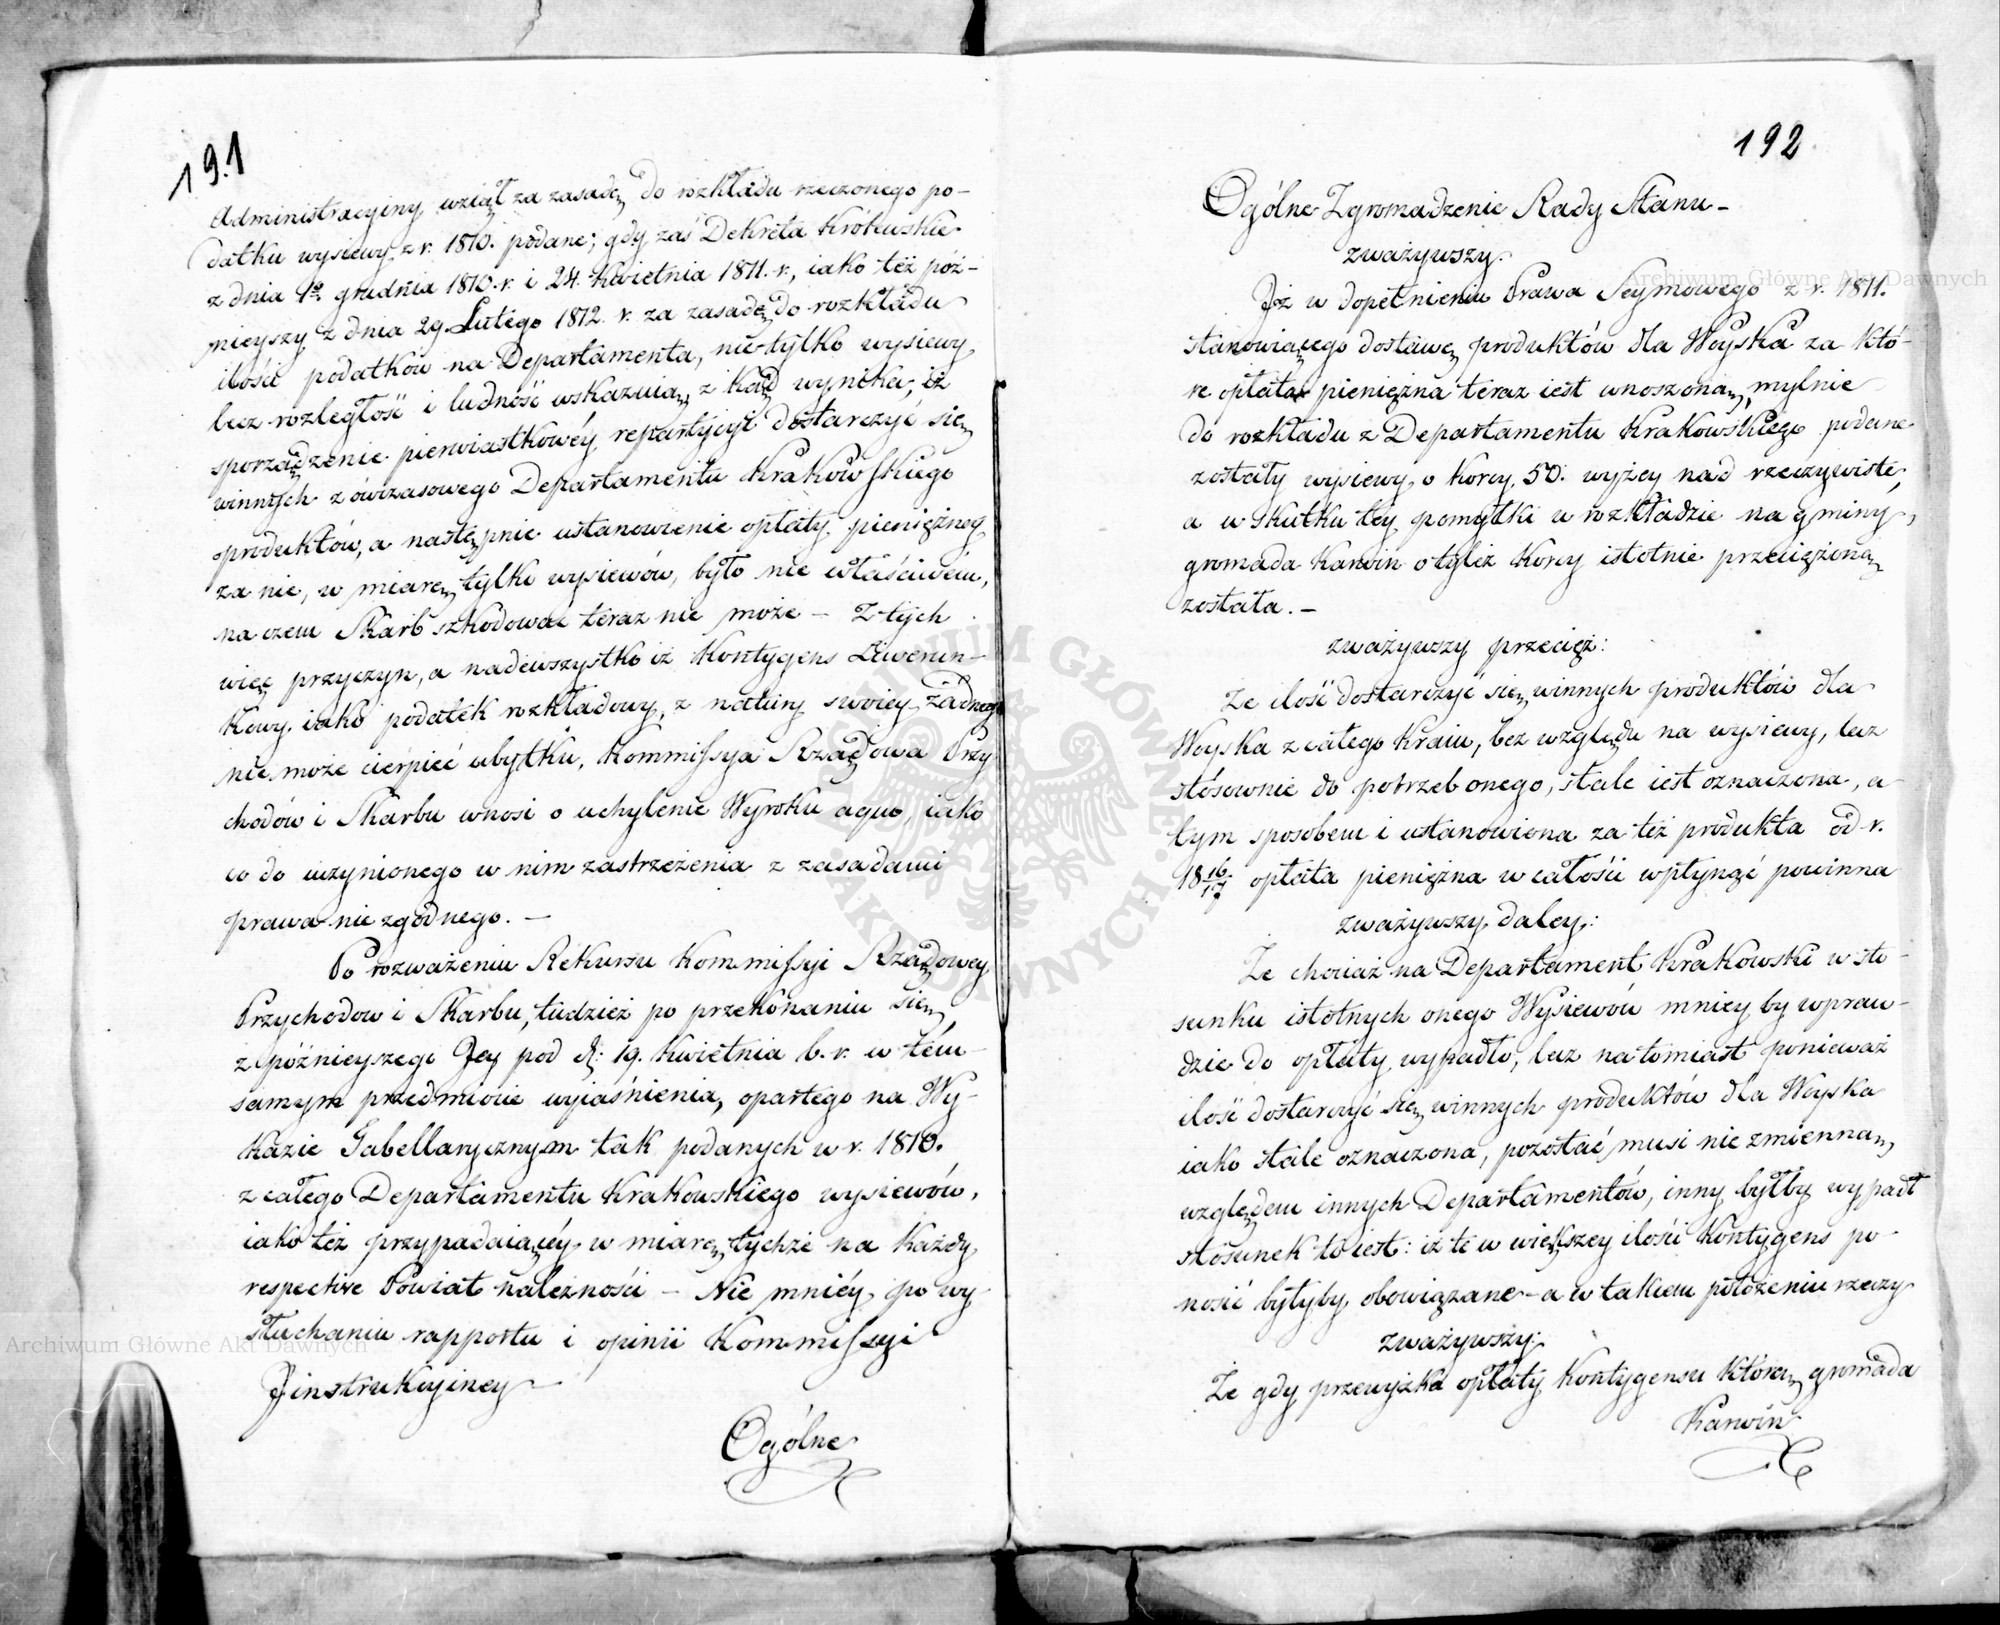 191
Administracyiny wziął za zasadę do rozkładu rzeczonego po-
datku wysiewy z r. 1810. podane; gdy zaś Dekreta Królewskie
z dnia 1º grudnia 1810. r. i 24. Kwietnia 1811. r., iako też póź-
nieyszy z dnia 29 Lutego 1812. r. za zasadę do rozkładu
ilości podatków na Departamenta, nie tylko wysiewy
lecz rozległość i ludność wskazuią, z kąd wynika, iż
sporządzenie pierwiastkowéy repartycyi dostarczyć się
winnych z ówczasowego Departamentu Krakowskiego
produktów, a następnie ustanowienie opłaty pieniężney
za nie, w miarę tylko wysiewów, było nie właściwém,
na czem Skarb szkodować teraz nie może – Z tych
więc przyczyn, a nadewszystko iż Kontygens Liwerun-
kowy iako podatek rozkładowy, z natury swoiey żadnego
nie może cierpieć ubytku, Kommissya Rządowa Przy
chodów i Skarbu wnosi o uchylenie Wyroku a quo, iako
co do uczynionego w nim zastrzeżenia z zasadami
prawa nie zgodnego. –
Po rozważeniu Rekursu Kommissyi Rządowey
Przychodow i Skarbu, tudzież po przekonaniu się
z późnieyszego Jey pod d: 19. Kwietnia b. r. w tém
samym przedmiocie wyiaśnienia, opartego na Wy-
kazie Tabellarycznym tak podanych w r. 1810.
z całego Departamentu Krakowskiego wysiewów,
iako też przypadaiącéy w miarę tychże na każdy
respective Powiat należności – Nie mniéy po wy
słuchaniu rapportu i opinii Kommissyi
Jnstrukcyiney –
Ogólne
192
Ogólne Zgromadzenie Rady Stanu –
zważywszy.
Jż w dopełnieniu Prawa Seymowego z r. 1811.
stanowiącego dostawę produktów dla Woyska za któ-
re opłata pieniężna teraz iest wnoszoną, mylnie
do rozkładu z Departamentu Krakowskiego podane
zostały wysiewy o Korcy 50. wyżey nad rzeczywiste,
a w skutku tey pomyłki w rozkładzie na gminy,
gromada Karwin o tyleż Korcy istotnie przeciężoną
została. –
zważywszy przecięż:
Że ilość dostarczyć się winnych produktów dla
Woyska z całego Kraiu, bez względu na wysiewy, lecz
stósownie do potrzeb onego, stale iest oznaczona, a
tym sposobem i ustanowiona za też produkta od r.
18 16/17 opłata pieniężna w całości wpłynąć powinna
zważywszy daley:
Że chociaż na Departament Krakowski w sto-
sunku istotnych onego Wysiewów mniey by wpraw-
dzie do opłaty wypadło, lecz natomiast ponieważ
ilość dostarczyć się winnych produktów dla Woyska
iako stale oznaczona, pozostać musi nie zmienną,
względem innych Departamentów, inny byłby wypadł
stósunek to iest: iż te w większey ilości Kontygens po-
nosić byłyby obowiązane – a w takiem położeniu rzeczy
zważywszy:
Że gdy przewyżka opłaty Kontygensu którą gromada
Karwin